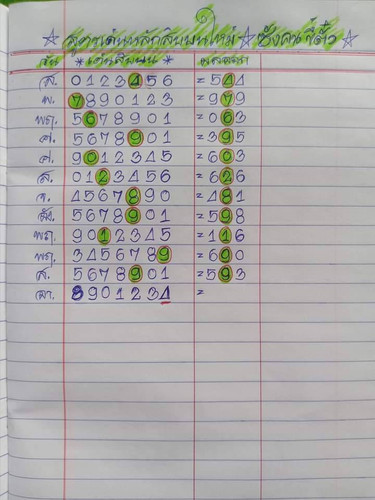 ☆ สูตรเด่นหลักสิบบนใหม่ ☆
วัน * เด่นสิบบน * ผลออก
ส. 0123456 = 544
พ. 7890123 = 979
พฤ. 5678901 = 063
ศ. 5678901 = 395
ศ. 9012345 = 603
ส. 0123456 = 626
จ. 4567890 = 481
อัง. 5678901 = 598
พฤ. 9012345 = 116
พฤ. 3456789 = 690
ส. 5678901 = 593
อา. 8901234 =